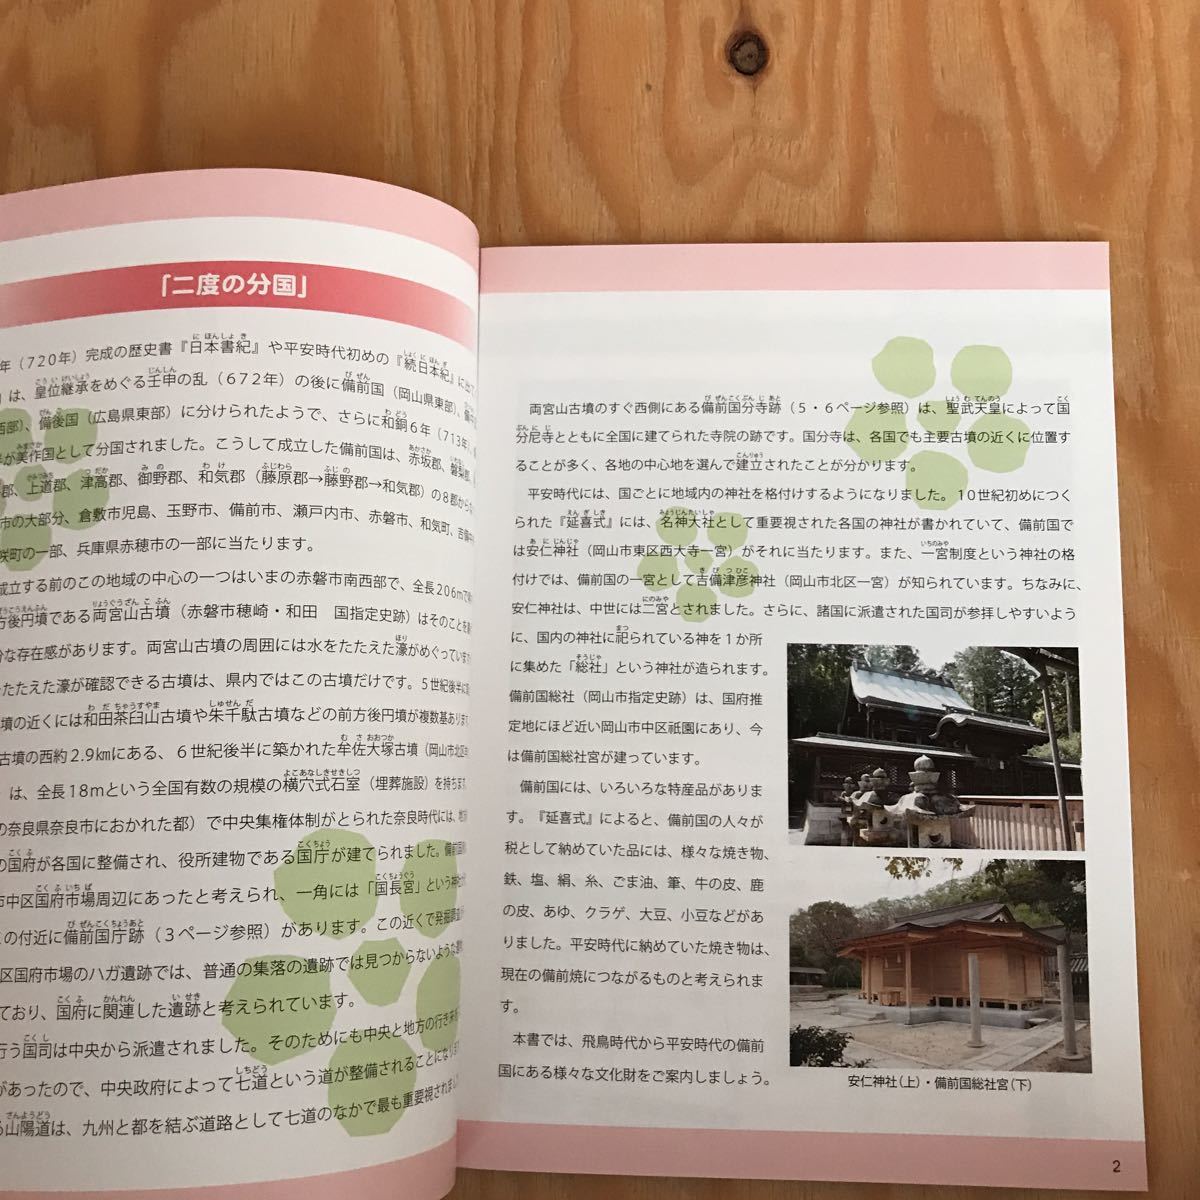 「二度の分国」
年（720年）完成の歴史書『日本書紀』や平安時代初めの『続日本紀』に
は、皇位継承をめぐる壬申の乱（672年）の後に備前国（岡山県東部）、
、備後国（広島県東部）に分けられたようで、さらに和銅6年（713年）
が美作国として分国されました。こうして成立した備前国は、赤坂郡、磐梨
郡、上道郡、津高郡、御野郡、和気郡（藤原郡→藤野郡→和気郡）の8郡から
市の大部分、倉敷市児島、玉野市、備前市、瀬戸内市、赤磐市、和気町、
町の一部、兵庫県赤穂市の一部に当たります。
成立する前のこの地域の中心の一つはいまの赤磐市南西部で、全長206mで
方後円墳である両宮山古墳（赤磐市穂崎・和田　国指定史跡）はそのことを
な存在感があります。両宮山古墳の周囲には水をたたえた濠がめぐっています
をたたえた濠が確認できる古墳は、県内ではこの古墳だけです。5世紀後半に
墳の近くには和田茶臼山古墳や朱千駄古墳などの前方後円墳が複数基あります
古墳の西約2.9kmにある、6世紀後半に築かれた牟佐大塚古墳（岡山市北区
は、全長18mという全国有数の規模の横穴式石室（埋葬施設）を持ちます
の奈良県奈良市におかれた都）で中央集権体制がとられた奈良時代には、
の国府が各国に整備され、役所建物である国庁が建てられました。備前国
市中区国府市場周辺にあったと考えられ、一角には「国長宮」という神社が
の付近に備前国庁跡（3ページ参照）があります。この近くで発掘調査
区国府市場のハガ遺跡では、普通の集落の遺跡では見つからないような
ており、国府に関連した遺跡と考えられています。
行う国司は中央から派遣されました。そのためにも中央と地方の行き来
があったので、中央政府によって七道という道が整備されることになりま
る山陽道は、九州と都を結ぶ道路として七道のなかで最も重要視されまし
両宮山古墳のすぐ西側にある備前国分寺跡（5・6ページ参照）は、聖武天皇によって国
分尼寺とともに全国に建てられた寺院の跡です。国分寺は、各国でも主要古墳の近くに位置す
ることが多く、各地の中心地を選んで建立されたことが分かります。
平安時代には、国ごとに地域内の神社を格付けするようになりました。10世紀初めにつく
られた『延喜式』には、名神大社として重要視された各国の神社が書かれていて、備前国で
は安仁神社（岡山市東区西大寺一宮）がそれに当たります。また、一宮制度という神社の格
付けでは、備前国の一宮として吉備津彦神社（岡山市北区一宮）が知られています。ちなみに、
安仁神社は、中世には二宮とされました。さらに、諸国に派遣された国司が参拝しやすいよう
に、国内の神社に祀られている神を1か所
に集めた「総社」という神社が造られます。
備前国総社（岡山市指定史跡）は、国府推
定地にほど近い岡山市中区祇園にあり、今
は備前国総社宮が建っています。
備前国には、いろいろな特産品がありま
す。『延喜式』によると、備前国の人々が
税として納めていた品には、様々な焼き物、
鉄、塩、絹、糸、ごま油、筆、牛の皮、鹿
の皮、あゆ、クラゲ、大豆、小豆などがあ
りました。平安時代に納めていた焼き物は、
現在の備前焼につながるものと考えられま
す。
本書では、飛鳥時代から平安時代の備前
国にある様々な文化財をご案内しましょう。
安仁神社（上）・備前国総社宮（下）
2